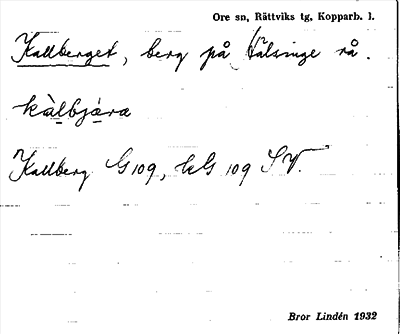 Ore sn, Rättviks tg, Kopparb. l.
Kallberget, berg på Hälsinge rå.
kàlbjæra
Kallberg G 109, kG 109 SV.
Bror Lindén 1932